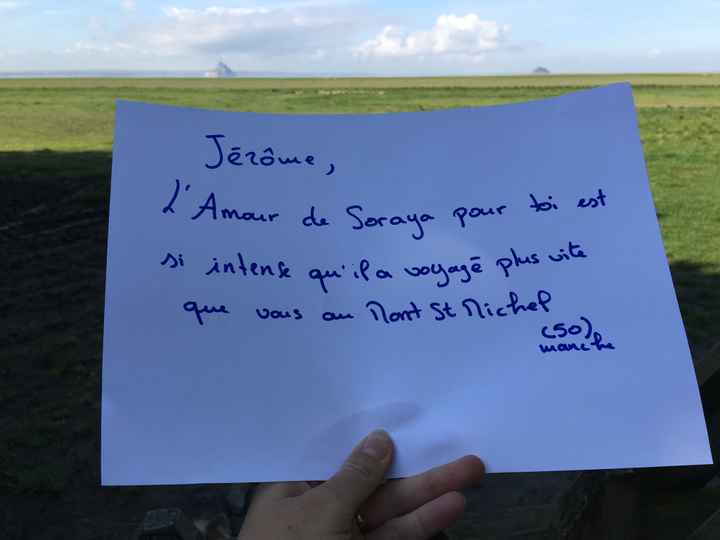 Jérôme,
L'Amour de Soraya pour toi est
si intense qu'il a voyagé plus vite
que vous au Mont St Michel
(50)
manche